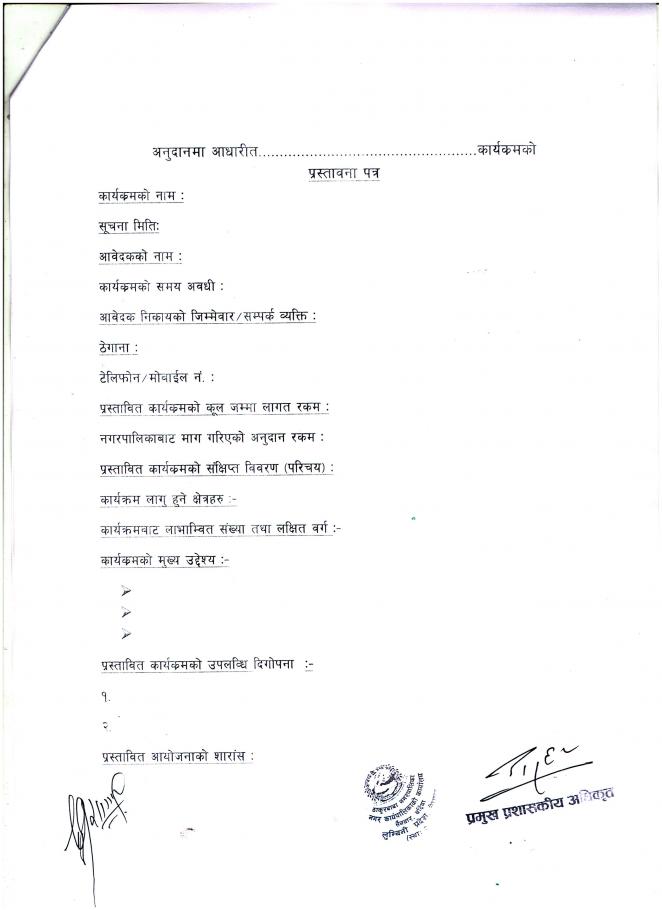 अनुदानमा आधारीत..................................................कार्यक्रमको
प्रस्तावना पत्र
कार्यक्रमको नाम :
सूचना मितिः
आवेदकको नाम :
कार्यक्रमको समय अवधी :
आवेदक निकायको जिम्मेवार/सम्पर्क व्यक्ति :
ठेगाना :
टेलिफोन/मोवाईल नं. :
प्रस्तावित कार्यक्रमको कूल जम्मा लागत रकम :
नगरपालिकाबाट माग गरिएको अनुदान रकम :
प्रस्तावित कार्यक्रमको संक्षिप्त विवरण (परिचय) :
कार्यक्रम लागु हुने क्षेत्रहरु :-
कार्यक्रमवाट लाभाम्वित संख्या तथा लक्षित वर्ग :-
कार्यक्रमको मुख्य उद्देश्य :-
➢
➢
➢
प्रस्तावित कार्यक्रमको उपलव्धि दिगोपना :-
१.
२.
प्रस्तावित आयोजनाको शारांस :
ठाकुरबाबा नगरपालिका
नगर कार्यपालिकाको कार्यालय
लुम्बिनी प्रदेश
प्रमुख प्रशासकीय अधिकृत